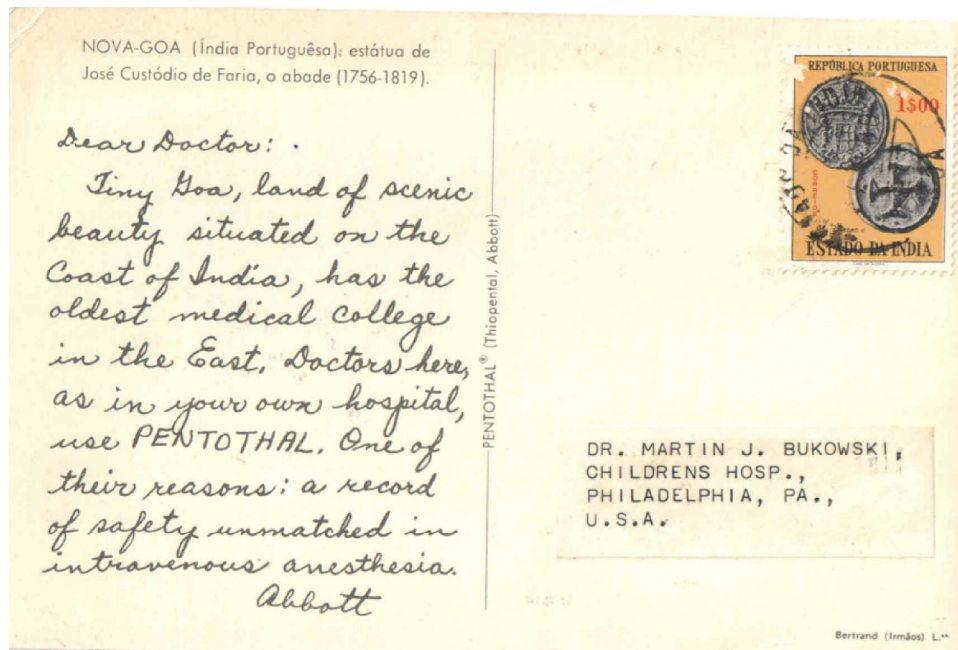 NOVA-GOA (Índia Portuguêsa): estátua de
José Custódio de Faria, o abade (1756-1819).
Dear Doctor:
Tiny Goa, land of scenic
beauty situated on the
Coast of India, has the
oldest medical college
in the East. Doctors here,
as in your own hospital,
use PENTOTHAL. One of
their reasons: a record
of safety unmatched in
intravenous anesthesia.
Abbott
PENTOTHAL® (Thiopental, Abbott)
REPÚBLICA PORTUGUESA
1$00
CORREIOS
ESTADO DA INDIA
DR. MARTIN J. BUKOWSKI,
CHILDRENS HOSP.,
PHILADELPHIA, PA.,
U.S.A.
Bertrand (Irmãos) L.da